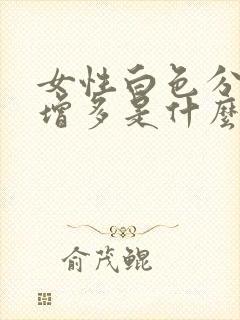 女性白色分
增多是什麼
俞茂鲲